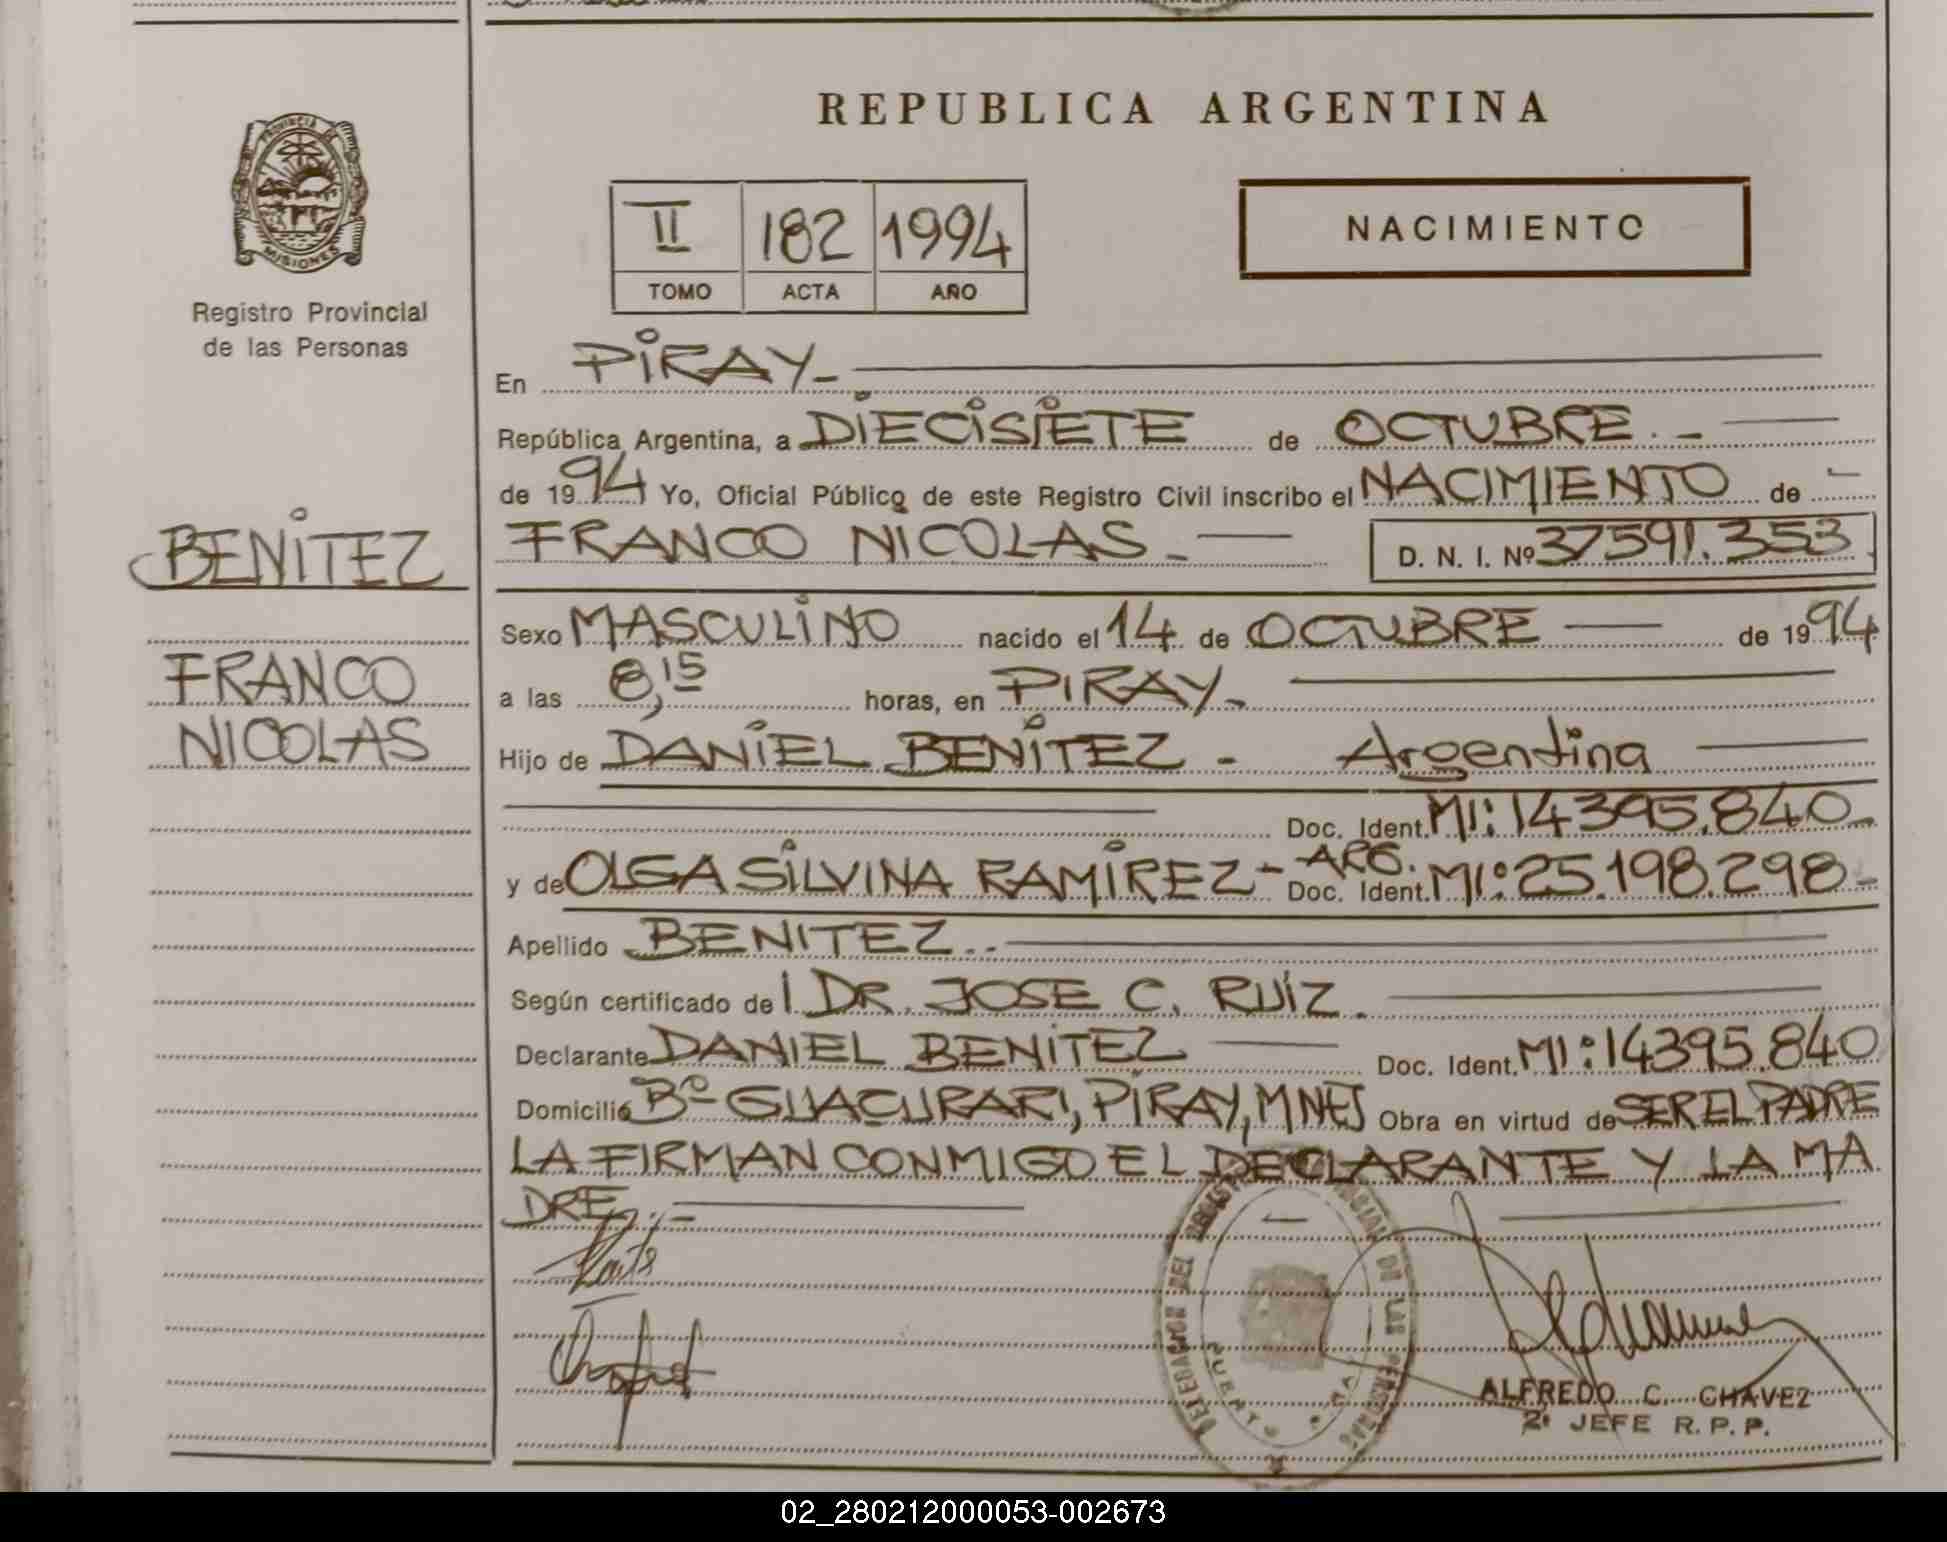 PROVINCIA DE
MISIONES
Registro Provincial
de las Personas
BENITEZ
FRANCO
NICOLAS
REPUBLICA ARGENTINA
II 182 1994
TOMO ACTA AÑO
NACIMIENTO
En PIRAY_
República Argentina, a DIECISIETE de OCTUBRE._
de 1994 Yo, Oficial Público de este Registro Civil inscribo el NACIMIENTO de
FRANCO NICOLAS_ D. N. I. Nº 37591.353
Sexo MASCULINO nacido el 14 de OCTUBRE de 1994
a las 8,15 horas, en PIRAY_
Hijo de DANIEL BENITEZ - Argentina
Doc. Ident. MI: 14395.840_
y de OLGA SILVINA RAMIREZ - ARG. Doc. Ident. MI: 25.198.298-
Apellido BENITEZ..
Según certificado de l DR. JOSE C. RUIZ.
Declarante DANIEL BENITEZ Doc. Ident. MI: 14395.840
Domicilio Bº GUACURARI, PIRAY, MNES Obra en virtud de SER EL PADRE
LA FIRMAN CONMIGO EL DECLARANTE Y LA MA
DRE.-
DELEGACION DEL REGISTRO PROVINCIAL DE LAS PERSONAS
PUERTO
ALFREDO C. CHAVEZ
2º JEFE R. P. P.
02_280212000053-002673